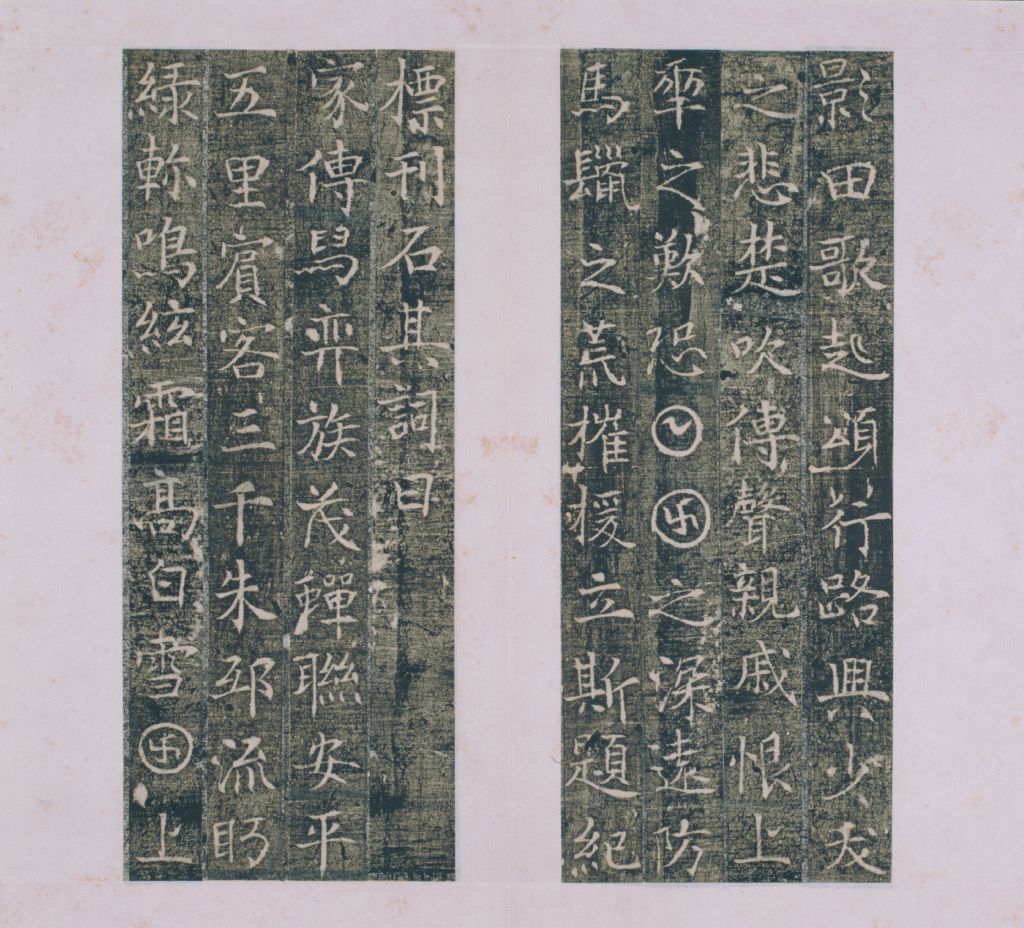 影田歌起頌行路興少犮
之悲楚吹傳聲親戚恨上
之歎恐𡆠𠥱之深遠防
馬鬣之荒摧援立斯題紀
標刊石其詞曰
家傳舄弈族茂聯安平
五里賓客三千朱邸流眄
綠軫鳴絃霜高白雪𠥱上